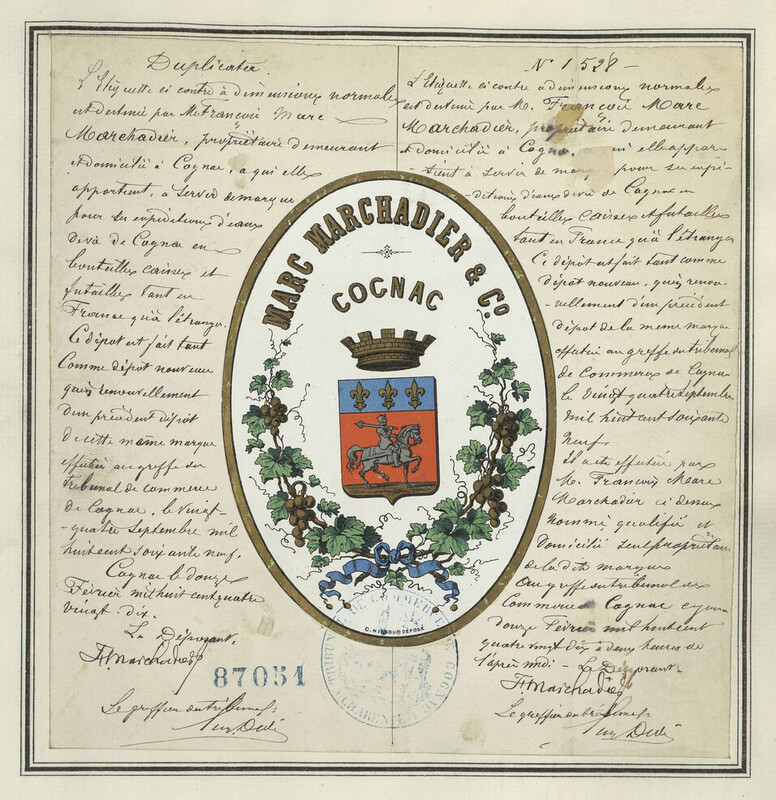 Duplicata.
L'Etiquette ci contre à dimensions normales
est destinée par Mr François Marc
Marchadier, propriétaire demeurant
et domicilié à Cognac, a qui elle
appartient, a servir de marque
pour ses expéditions d'eaux
de vie de Cognac en
bouteilles caisses et
futailles tant en
France qu'à l'étranger.
Ce dépôt est fait tant
comme dépôt nouveau
qu'en renouvellement
d'un précédent dépôt
de cette même marque
effectué au greffe du
tribunal de commerce
de Cognac, le vingt-
quatre septembre mil
huit cent soixante neuf.
Cognac le douze
Février mil huit cent quatre
vingt dix.
Le Déposant,
Fs Marchadier
87051
Le greffier du tribunal:
MARC MARCHADIER & Co.
COGNAC
C. NISSOU DÉPOSÉ
TRIBUNAL DE COMMERCE COGNAC
(CHARENTE)
No 1528
L'Etiquette ci contre à dimensions normales
est destinée par M. François Marc
Marchadier, propriétaire demeurant
et domicilié à Cognac, qui elle appar-
tient à servir de marque pour ses expé-
ditions d'eaux de vie de Cognac en
bouteilles caisses et futailles
tant en France qu'à l'étranger
Ce dépôt est fait tant comme
dépôt nouveau, qu'en renou-
vellement d'un précédent
dépôt de la même marque
effectué au greffe du tribunal
de Commerce de Cognac
le vingt quatre septembre
mil huit cent soixante
neuf.
Il a été effectué par
M. François Marc
Marchadier ci dessus
nommé qualifié et
domicilié seul propriétaire
de la dite marque
Au greffe du tribunal de
Commerce Cognac ce jour
douze Février mil huit cent
quatre vingt dix à deux heures de
l'après midi - Le Déposant
Fs Marchadier
Le greffier du tribunal: